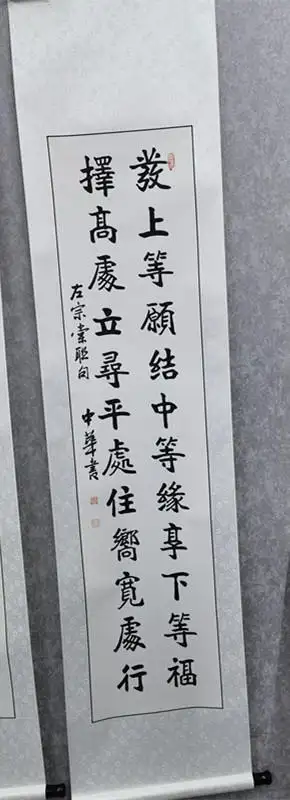 發上等願結中等緣享下等福
擇高處立尋平處住嚮寬處行
左宗棠聯句
中華書